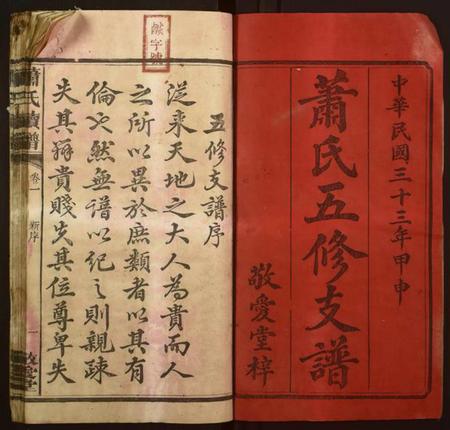 中華民國三十三年甲申
蕭氏五修支譜
敬愛堂梓
五修支譜序
從來天地之大人為貴而人
之所以異於庶類者以其有
倫也然無譜以紀之則親疎
失其辨貴賤失其位尊卑失
蕭氏續譜
卷一
新序
一
敬愛堂